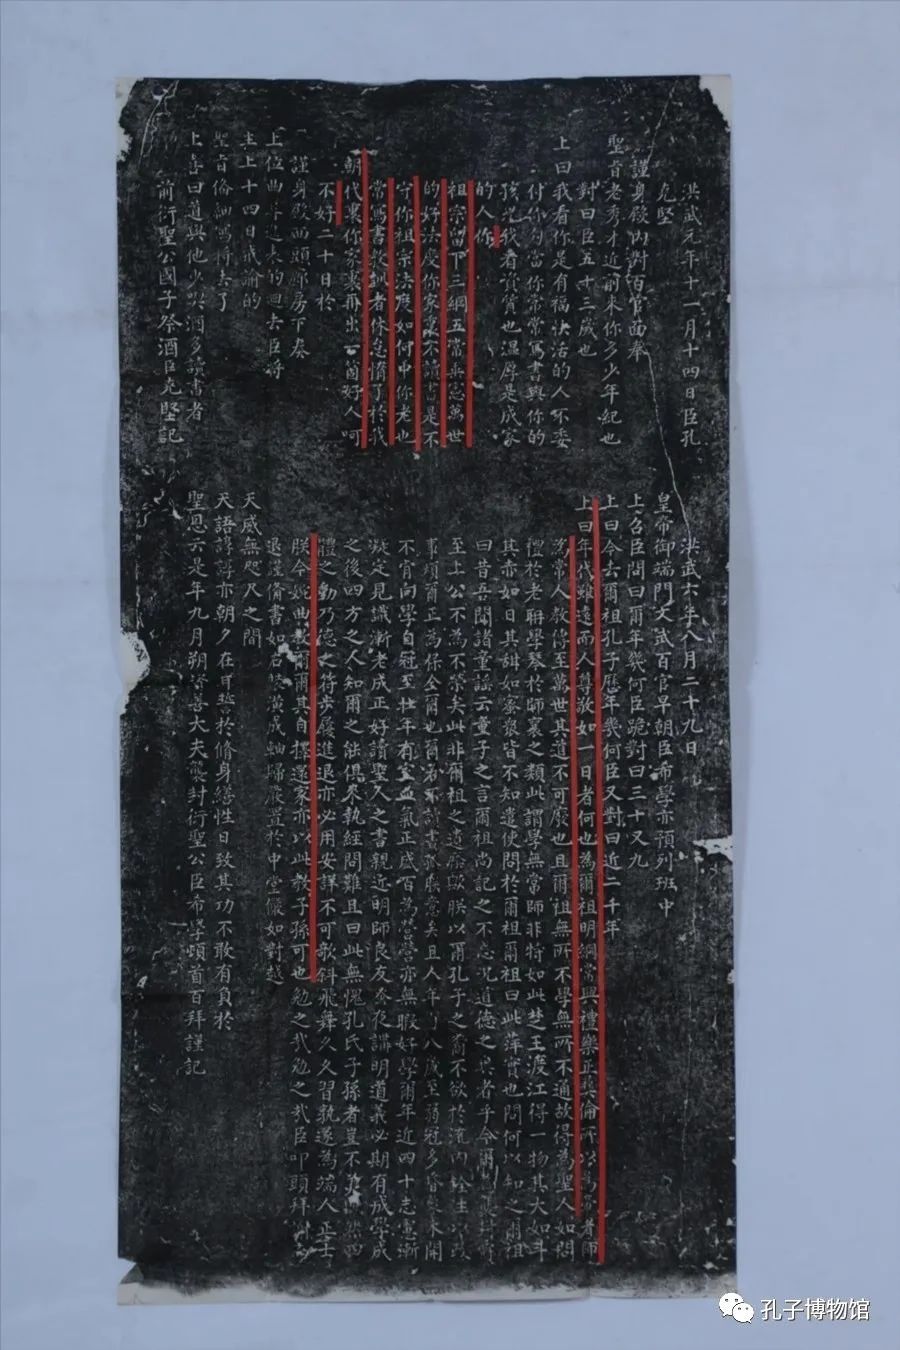 洪武元年十一月十四日臣孔
克堅
謹身殿內對百官面奉
聖旨老秀才近前來你多少年紀也
對曰臣五十三歲也
上曰我看你是有福快活的人不委
付你勾當你常常寫書與你的
孩兒我看資質也溫厚是成家
的人你
祖宗留下三綱五常垂憲萬世
的好法度你家裏不讀書是不
守你祖宗法度如何中你老也
常寫書教訓者休怠惰了於我
朝代裏你家裏再出一箇好人呵
不好二十日於
謹身殿西頭廊房下奏
上位曲阜進表的回去臣將
主上十四日戒諭的
聖旨備細寫將去了
上喜曰道與他少喫酒多讀書者
前衍聖公國子祭酒臣克堅記
洪武六年八月二十九日
皇帝御端門文武百官早朝臣希學亦預列班中
上召臣問曰爾年幾何臣跪對曰三十又九
上曰今去爾祖孔子歷年幾何臣又對曰近二千年
上曰年代雖遠而人尊敬如一日者何也為爾祖明綱常興禮樂正彝倫所以為帝者師
為常人教傳至萬世其道不可廢也且爾祖無所不學無所不通故得為聖人如問
禮於老聃學琴於師襄之類此謂學無常師非特如此楚王渡江得一物其大如斗
其赤如日其甜如蜜眾皆不知遣使問於爾祖爾祖曰此萍實也問何以知之爾祖
曰昔吾聞諸童謠云童子之言爾祖尚記之不忘況道德之 者乎今爾 襲封爵
至上公不為不榮矣此非爾祖之遺 歟朕以爾孔子之裔不欲於流內銓注以政
事煩爾正為保全爾也爾若不讀書孤朕意矣且人年 八歲至弱冠多昏 未開
不肯向學自冠至壯年有室血氣正盛百為營營亦無暇好學爾年近四十志慮漸
凝定見識漸老成正好讀聖人之書親近明師良友蚤夜講明道義必期有成學成
之後四方之人知爾之能俱來執經問難且曰此無愧孔氏子孫者豈不 然四
體之動乃德之符步履進退亦必用安詳不可欹斜飛舞久久習熟遂為端人正士
朕今婉曲教爾爾其自擇還家亦以此教子孫可也勉之哉勉之哉臣叩頭拜謝
退謹備書如右裝潢成軸歸嚴置於中堂儼如對越
天威無咫尺之間
天語諄諄亦朝夕在耳 於脩身繕性日致其功不敢有負於
聖恩云是年九月朔資善大夫襲封衍聖公臣希學頓首百拜謹記
孔子博物馆